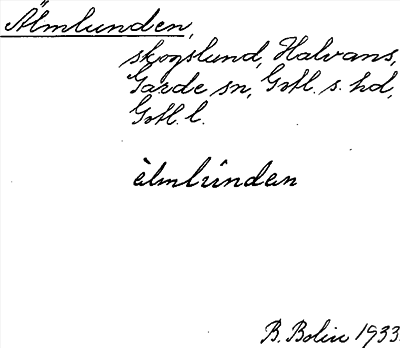 Älmlunden,
skogslund, Halvans,
Garde sn, Gotl. s. hd,
Gotl. l.
èlmlûnden
B. Bolin 1933.